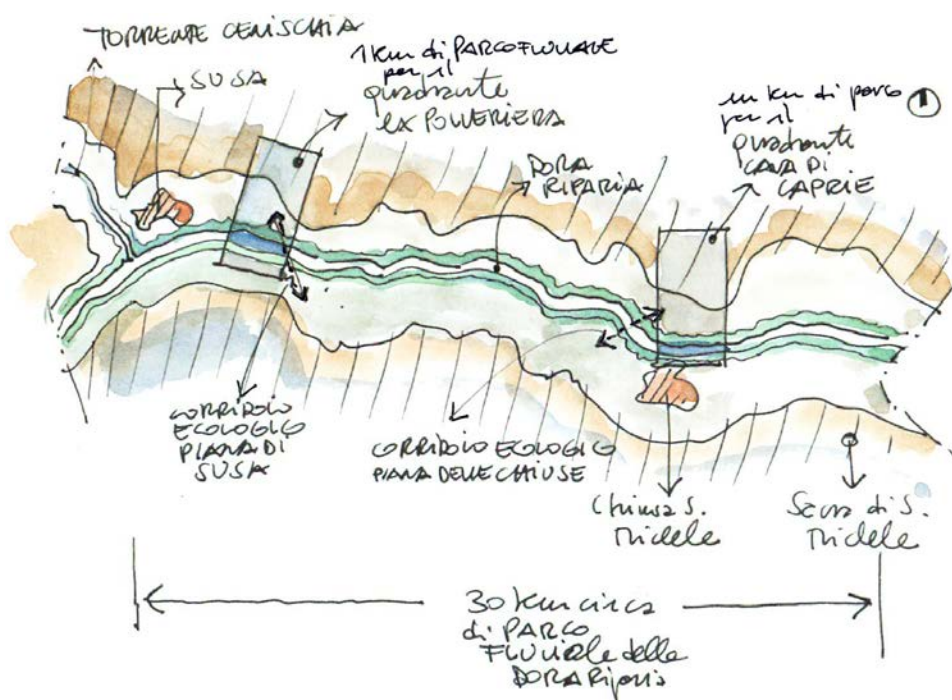 TORRENTE CENISCHIA
SUSA
1 km di PARCO FLUVIALE
per il
quadrante
ex POLVERIERA
un km di parco
per il
quadrante
CAVA DI
CAPRIE
1
DORA
RIPARIA
CORRIDOIO
ECOLOGICO
PIANA DI
SUSA
CORRIDOIO ECOLOGICO
PIANA DELLE CHIUSE
Chiusa S.
Michele
Sacra di S.
Michele
30 km circa
di PARCO
FLUViale della
DORA Riparia